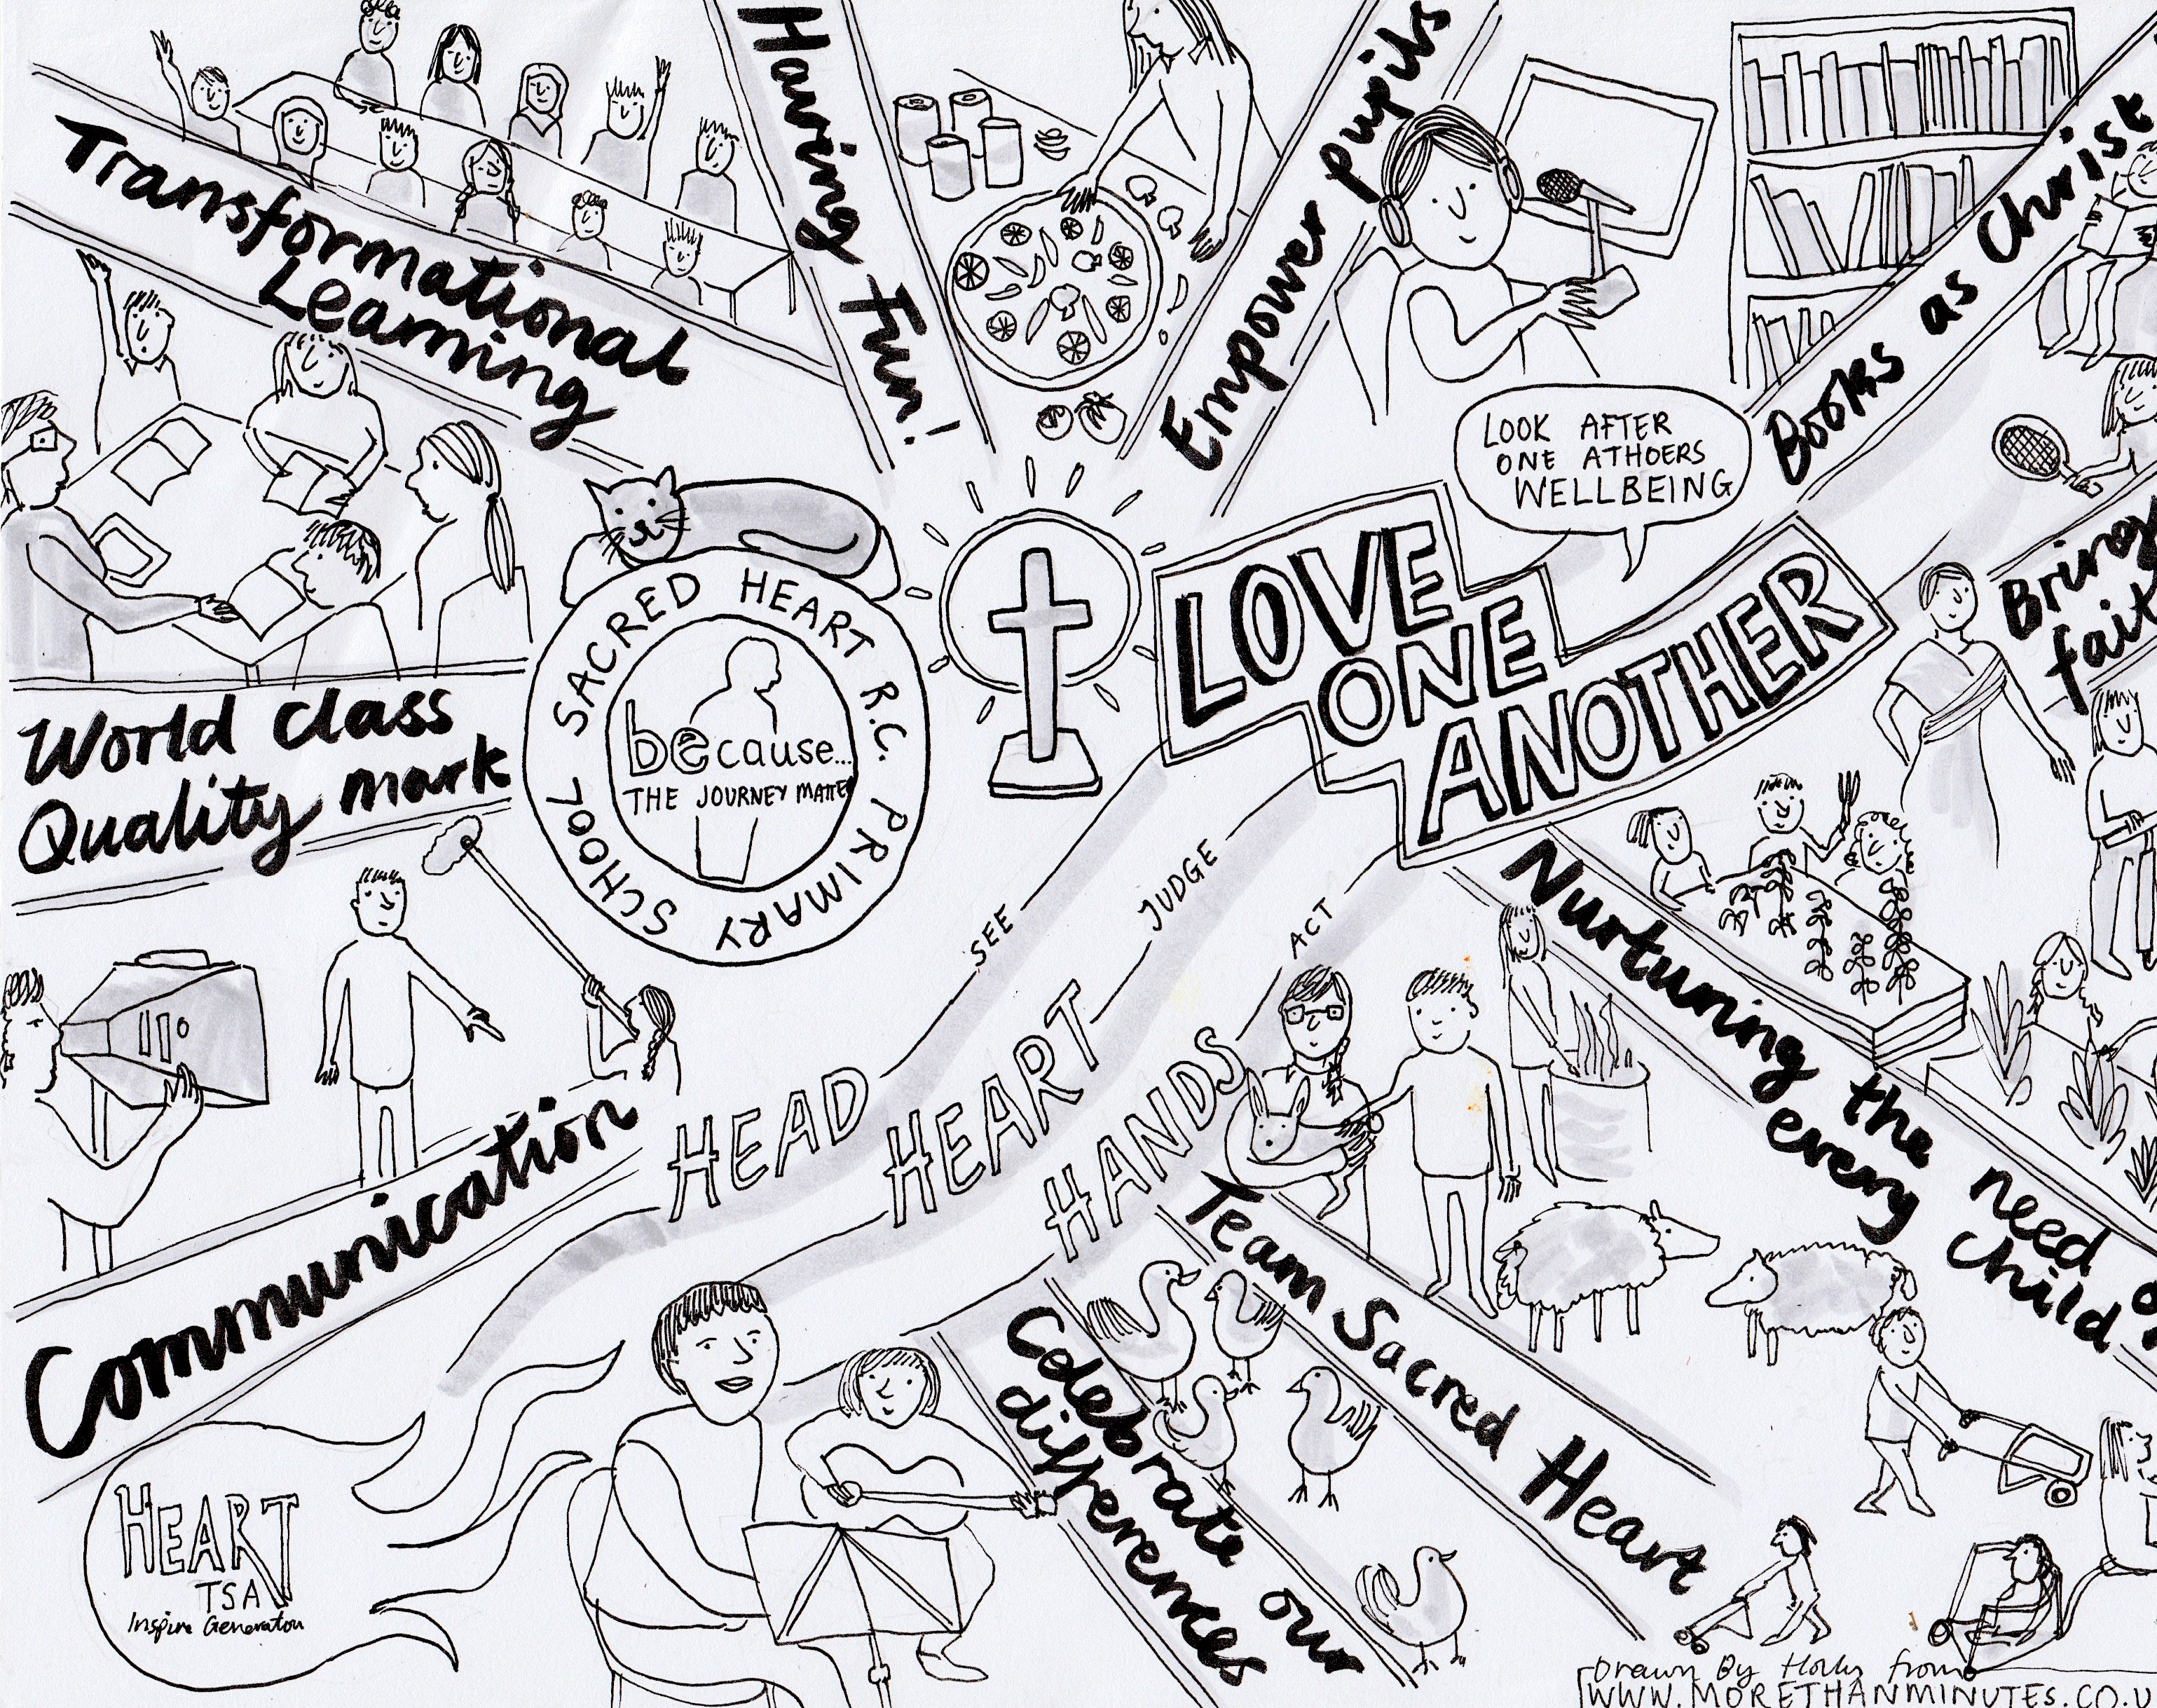 Transformational
Learning
Having Fun!
Empower pupils
Books as Christ
LOOK AFTER
ONE ATHOERS
WELLBEING
LOVE
ONE
ANOTHER
Bring
fait
SACRED HEART R.C. PRIMARY SCHOOL
because...
THE JOURNEY MATTE
World class
Quality mark
SEE
JUDGE
ACT
HEAD
HEART
HANDS
Nurturing the need o
every child
Communication
Team Sacred Heart
Celebrate our
differences
HEART
TSA
Inspire Generation
Drawn By Holly from
WWW.MORETHANMINUTES.CO.U